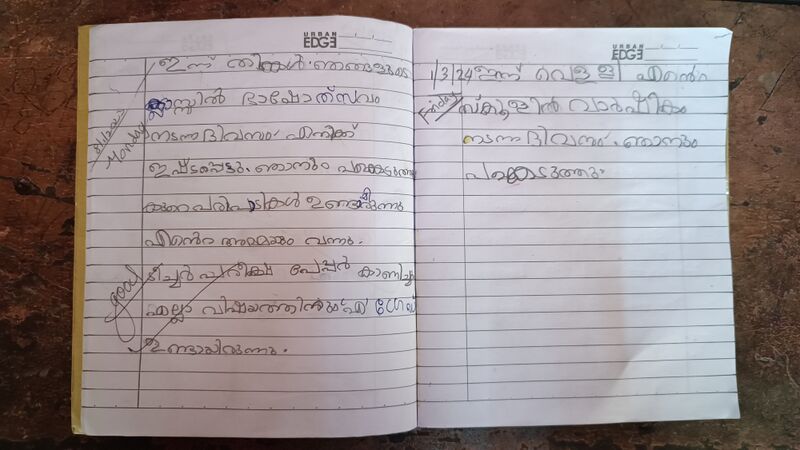 URBAN
EDGE
ഇന്ന് തിങ്കൾ. ഞങ്ങളുടെ
Monday
ക്ലാസ്സിൽ ഭാഷോത്സവം
നടന്ന ദിവസം. എനിക്ക്
ഇഷ്ടപ്പെട്ടു. ഞാനും പങ്കെടുത്തു
കുറെ പരിപാടികൾ ഉണ്ടായിരുന്നു
എൻെറ അമ്മയും വന്നു.
ടീച്ചർ പരീക്ഷ പേപ്പർ കാണിച്ചു
good
എല്ലാ വിഷയത്തിൻ്റെയും ഗ്രേഡ്
ഉണ്ടായിരുന്നു.
URBAN
EDGE
1/3/24 ഇന്ന് വെള്ളി എൻെറ
Friday
സ്കൂളിൻ വാർഷികം
നടന്ന ദിവസം. ഞാനും
പങ്കെടുത്തു.